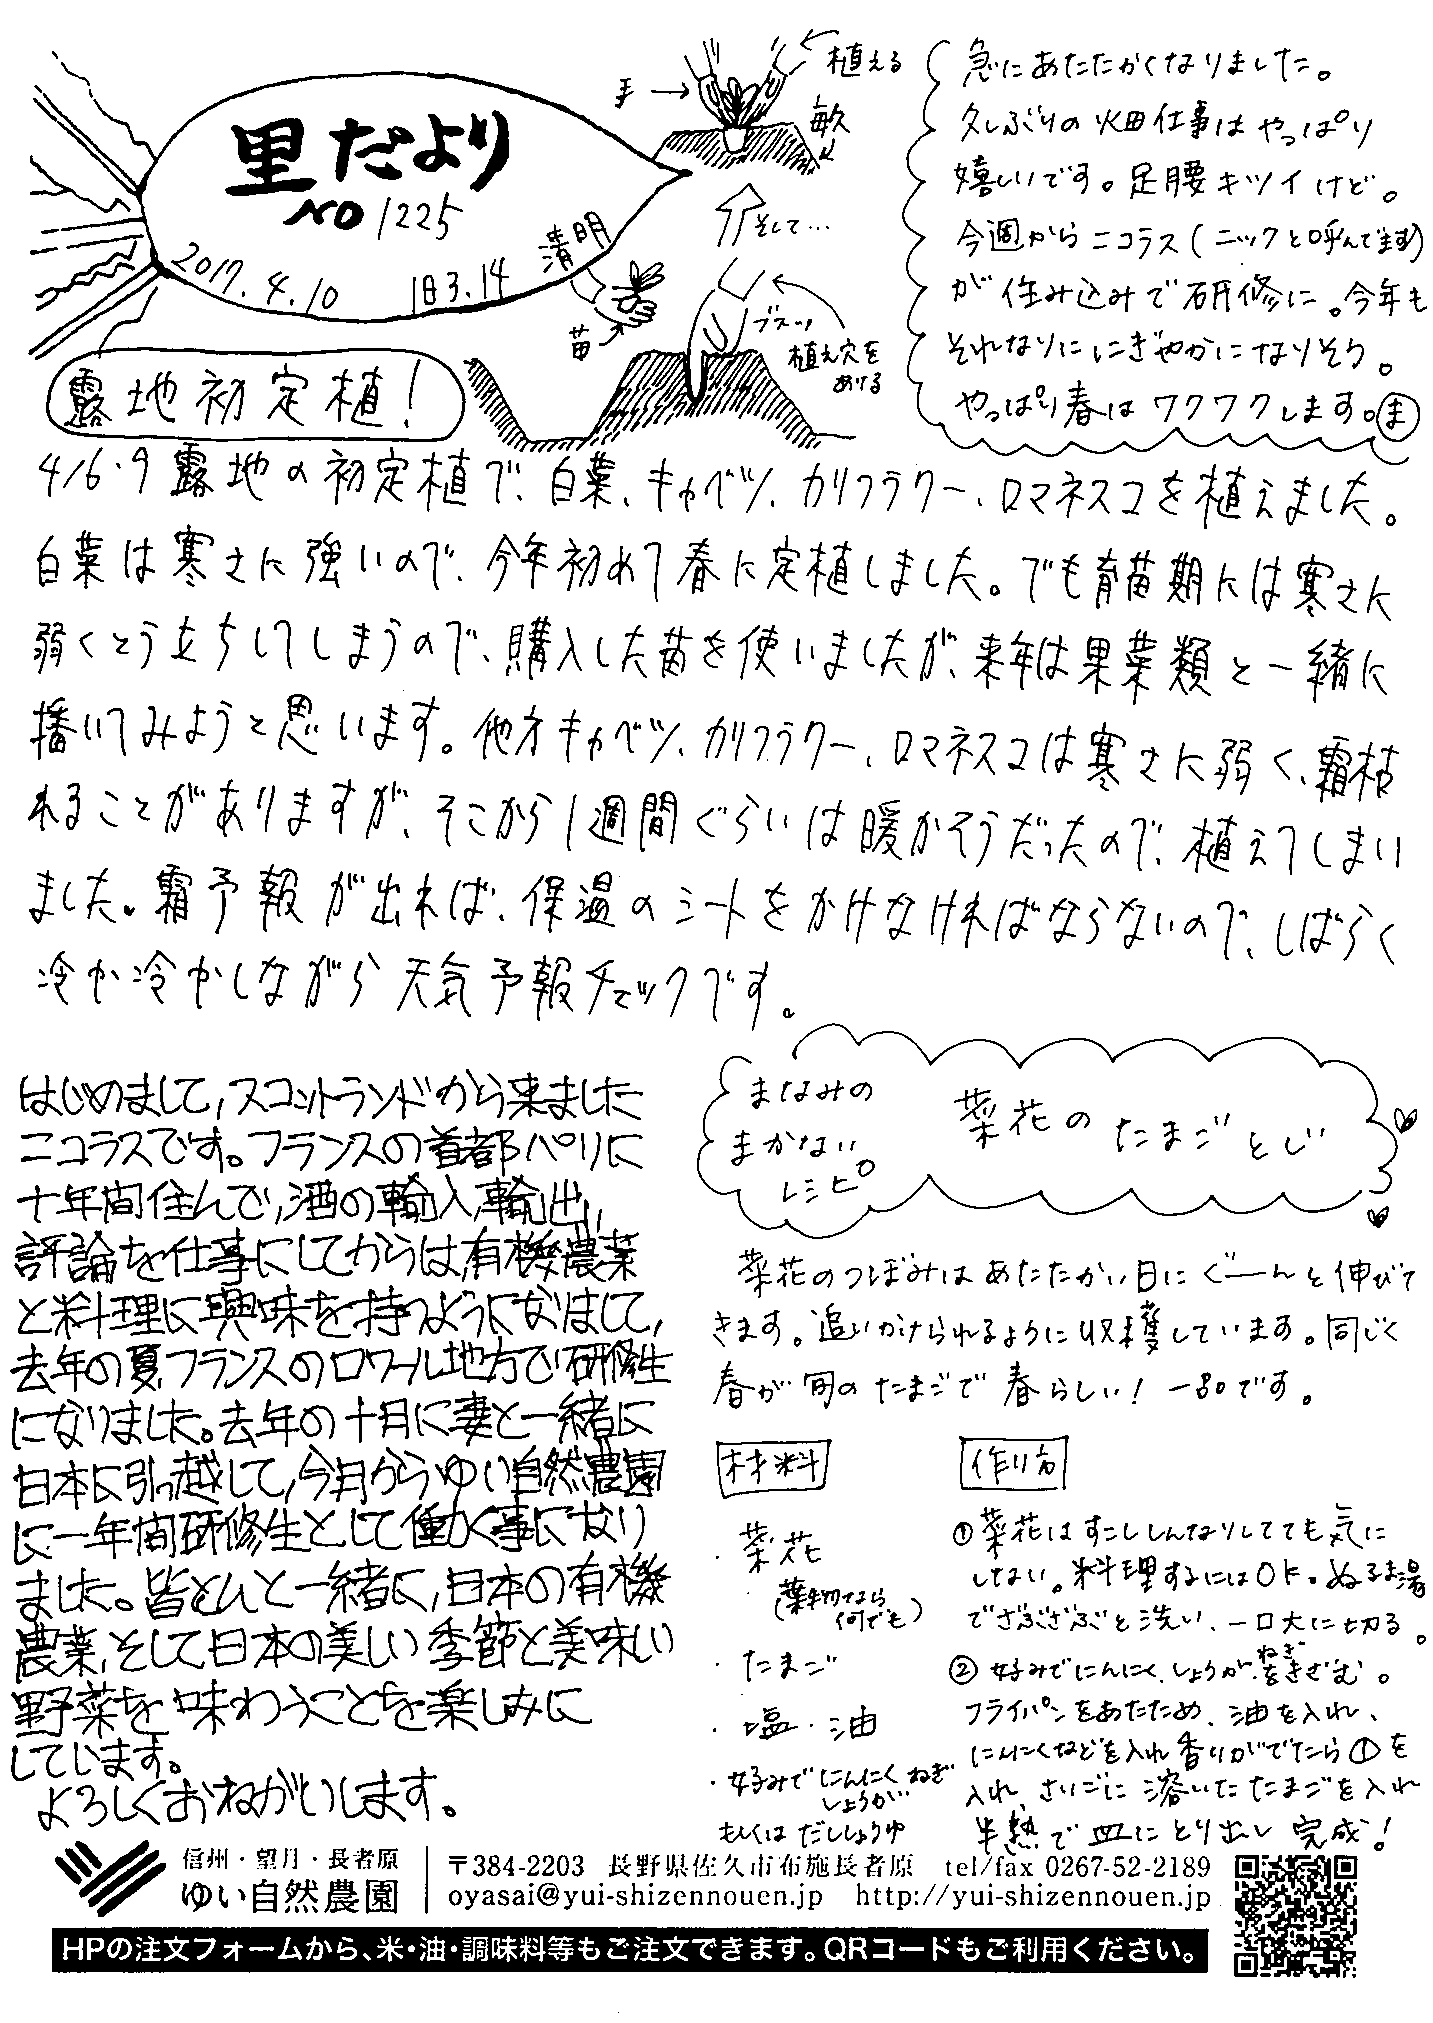 里だより
NO 1225
2017.4.10 旧3.14 清明
手→
植える
畝
そして…
苗
ブスッ
植え穴を
あける
急にあたたかくなりました。
久しぶりの畑仕事はやっぱり
嬉しいです。足腰キツイけど。
今週からニコラス(ニックと呼んでます)
が住み込みで研修に。今年も
それなりににぎやかになりそう。
やっぱり春はワクワクします。ま
露地初定植!
4/6・9 露地の初定植で、白菜、キャベツ、カリフラワー、ロマネスコを植えました。
白菜は寒さに強いので、今年初めて春に定植しました。でも育苗期には寒さに
弱くとう立ちしてしまうので、購入した苗を使いましたが、来年は果菜類と一緒に
播いてみようと思います。他方キャベツ、カリフラワー、ロマネスコは寒さに弱く、霜枯
れることがありますが、そこから1週間ぐらいは暖かそうだったので、植えてしまい
ました。霜予報が出れば、保温のシートをかけなければならないので、しばらく
冷や冷やしながら天気予報チェックです。
はじめまして,スコットランドから来ました
ニコラスです。フランスの首都パリに
十年間住んで,酒の輸入,輸出,
評論を仕事にしてからは,有機農業
と料理に興味を持つようになりまして,
去年の夏,フランスのロワール地方で研修生
になりました。去年の十月に妻と一緒に
日本に引っ越して,今月からゆい自然農園
に一年間研修生として働く事になり
ました。皆さんと一緒に,日本の有機
農業,そして日本の美しい季節と美味しい
野菜を味わうことを楽しみに
しています。
よろしくおねがいします。
まなみの
まかない
レシピ
菜花のたまごとじ
菜花のつぼみはあたたかい日にぐーんと伸びて
きます。追いかけられるように収穫しています。同じく
春が旬のたまごで春らしい!一品です。
材料
・菜花
(葉物なら
何でも)
・たまご
・塩・油
・好みでにんにく ねぎ
しょうが
もしくはだししょうゆ
作り方
①菜花はすこししんなりしてても気に
しない。料理するにはOK。ぬるま湯
でざぶざぶと洗い、一口大に切る。
②好みでにんにく、しょうが、ねぎをきざむ。
フライパンをあたため、油を入れ、
にんにくなどを入れ香りがでたら①を
入れ、さいごに溶いたたまごを入れ
半熟で皿にとり出し完成!
信州・望月・長者原
ゆい自然農園
〒384-2203 長野県佐久市布施長者原 tel/fax 0267-52-2189
oyasai@yui-shizennouen.jp http://yui-shizennouen.jp
HPの注文フォームから、米・油・調味料等もご注文できます。QRコードもご利用ください。